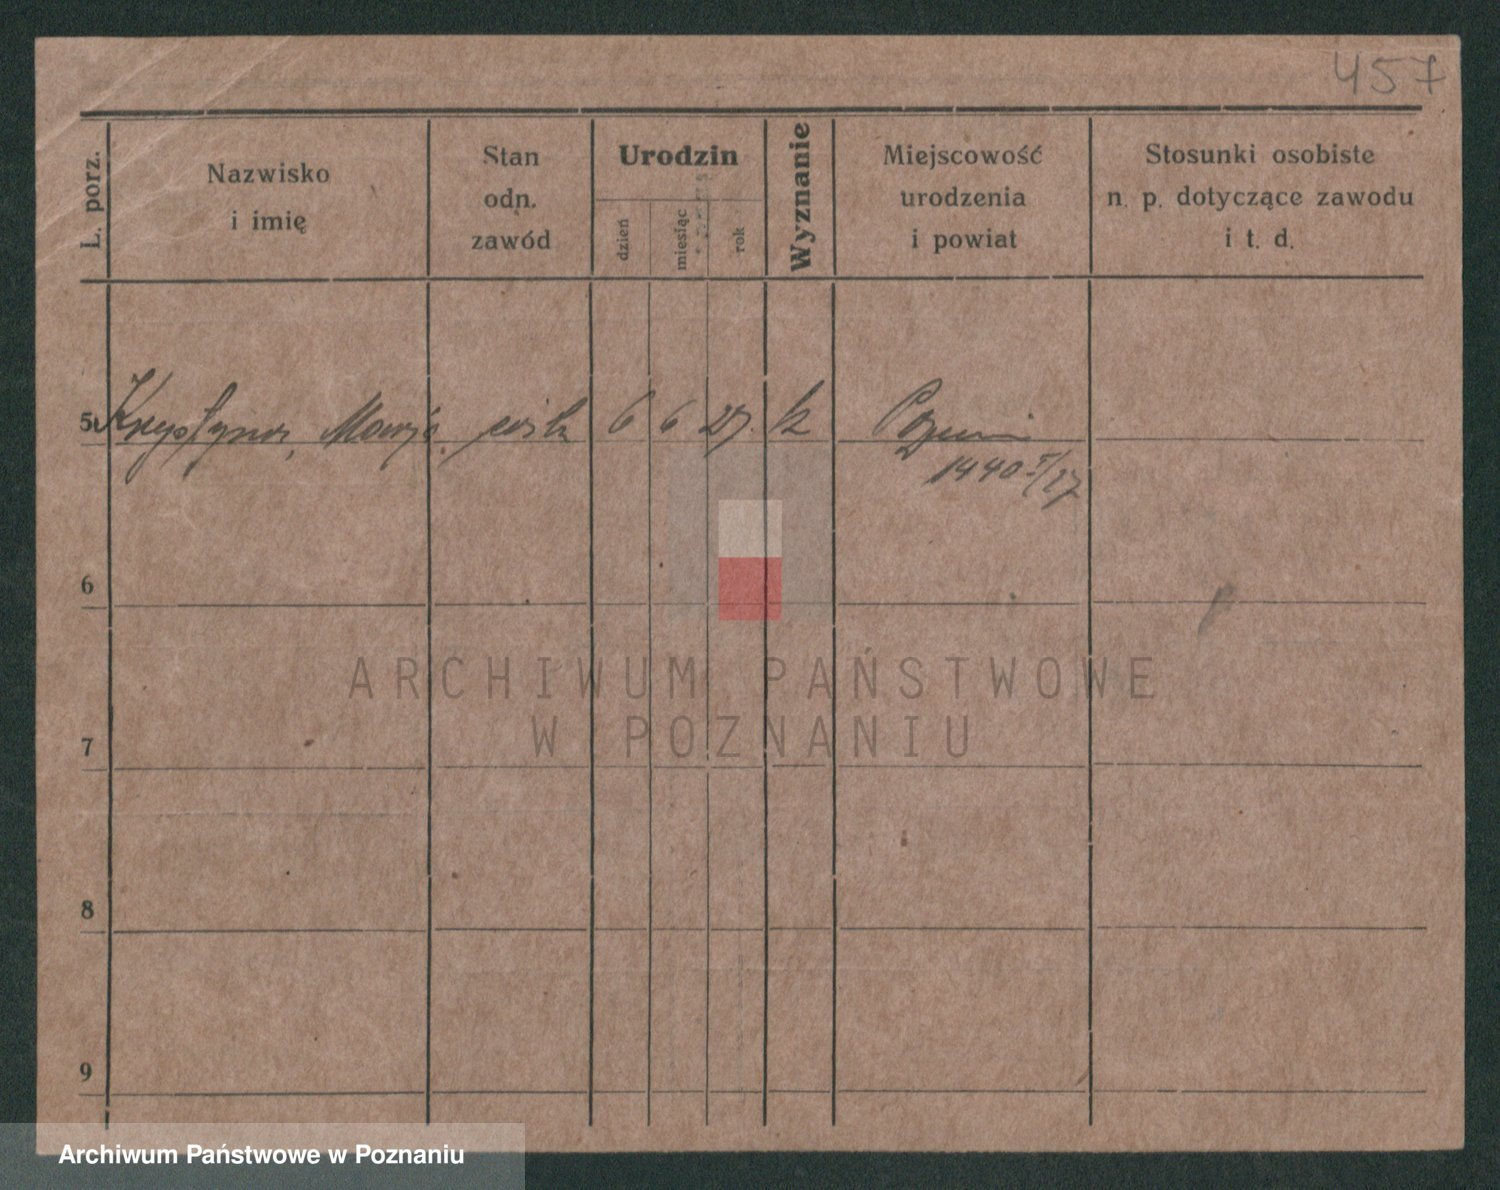 457
L. porz.
Nazwisko
i imię
Stan
odn.
zawód
Urodzin
dzień
miesiąc
rok
Wyznanie
Miejscowość
urodzenia
i powiat
Stosunki osobiste
n. p. dotyczące zawodu
i t. d.
5 Krystyna, Marja córka 6 6 27. k Poznań
1440 I/27
6
ARCHIWUM PAŃSTWOWE
W POZNANIU
7
8
9
Archiwum Państwowe w Poznaniu